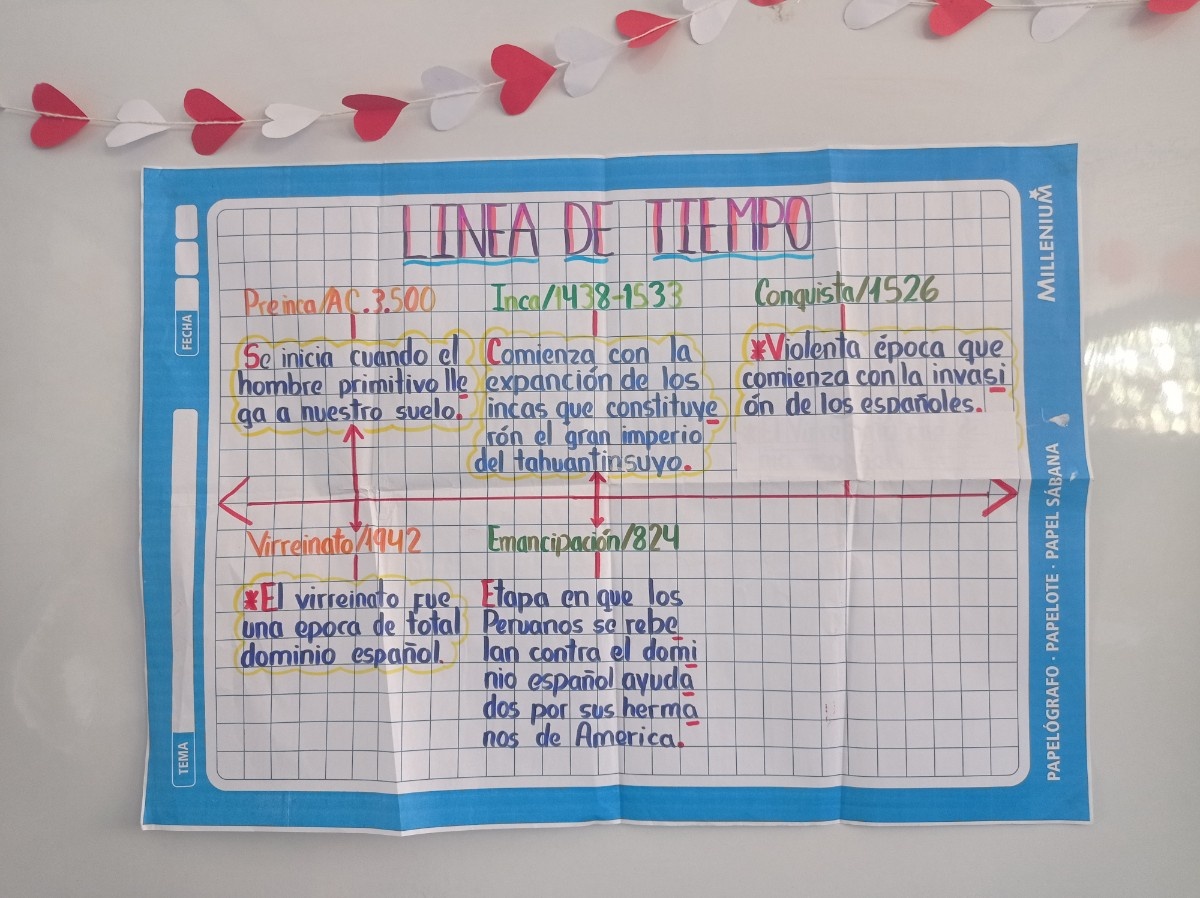 LINEA DE TIEMPO
Preinca/AC.3.500
Se inicia cuando el
hombre primitivo lle
ga a nuestro suelo.
Inca/1438-1533
Comienza con la
expanción de los
incas que constituye
rón el gran imperio
del tahuantinsuyo.
Conquista/1526
*Violenta época que
comienza con la invasi
ón de los españoles.
Virreinato/1942
*El virreinato fue
una epoca de total
dominio español.
Emancipación/824
Etapa en que los
Peruanos se rebe
lan contra el domi
nio español ayuda
dos por sus herma
nos de America.
FECHA
TEMA
MILLENIUM
PAPELÓGRAFO · PAPELOTE · PAPEL SÁBANA